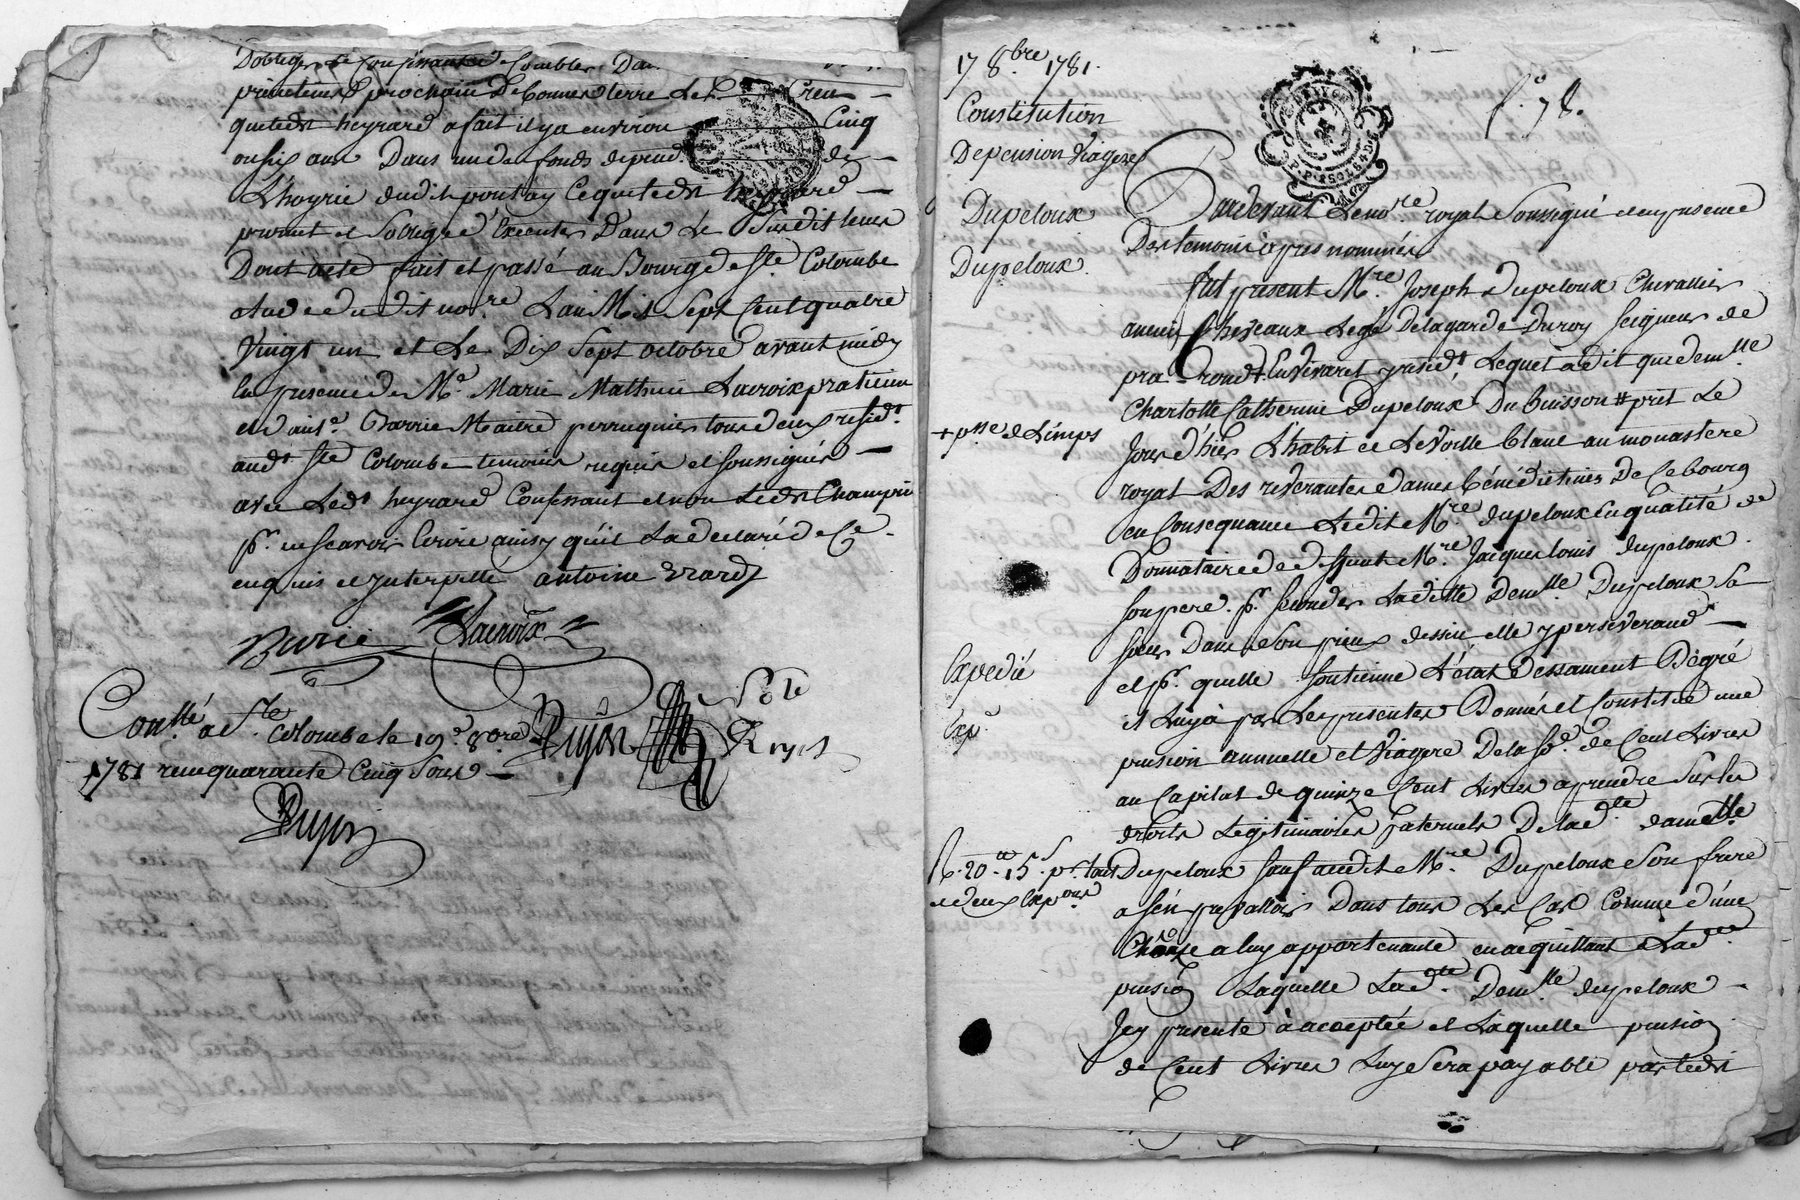 primtems prochain de bonne terre
quiledit heyrard a fait il ya environ Cinq
ou six ans Dans un des fonds depend. de
L'hoyrie dudit pontay Ce que ledit heyrard
promet et Soblige d'Executer Dans Le Susdit tems
Dont acte fait et passé au Bourg de Ste Colombe
etude dudit nore. Lan Mil Sept Cent quatre
Vingt un et Le Dix Sept octobre avant midy
En presence de Mr. Marie Mathieu Lacroix praticien
et d'ant.e Barrie Maitre perruquier tous deux resid.t
aud.t Ste Colombe temoins requis et soussignés
avec Led.t heyrard Confessant et non Ledit
p.r ne scavoir Ecrire ainsy quil La declaré de Ce
enquis et Interpellé antoine erard
Barrie Lacroix
Pujon
Con.llé a Ste. Colombe le 19e 8bre
1781 reçu quarante Cinq Sous
Pujon
17 8.bre 1781.
Constitution
De pension Viagere
Dupeloux
Dupeloux.
f.o 78.
Pardevant Le no.re royal Soussigné et en presence
Des temoins apres nommés
fut present M.re Joseph Dupeloux Chevallier
ancien Chevaux Leger De la garde du roy seigneur de
pra rond + En Vivarest presid.t Lequel a dit que dem.lle
+ p.sse de Limps
Charlotte Catherine Dupeloux Du buisson # prit Le
Jour d'hier L'habit et Le Voille blanc au monastere
royal Des reverantes dames bénédictines De Ce bourg
en Consequance Ledit M.re dupeloux En qualité de
Donnataire de deffunt M.re Jacques louis dupeloux
son pere. p.r seconder Laditte Dem.lle Dupeloux sa
sœur Dans Son pieux dessin elle y perseverand
Expedié
et p.r quelle soutienne L'état
Exp.
il Luy a par Les presentes Donné et Constitué une
pension annuelle et Viagere De la so.e de Cent Livres
au Capital de quinze Cent Livres a prendre Sur les
droits Legitimaires paternels De lad.te damelle
R. 20 15.s p.r tout
et deux Exp.ons
Dupeloux sauf audit M.re Dupeloux Son frere
a s'en prevalloir Dans tous Les Cas Comme d'une
Chose a luy appartenante en acquittant Lad.te
pension Laquelle Lad.te Dem.lle dupeloux
Icy presente à acceptée et Laquelle pension
de Cent Livres Luy Sera payable par ledit